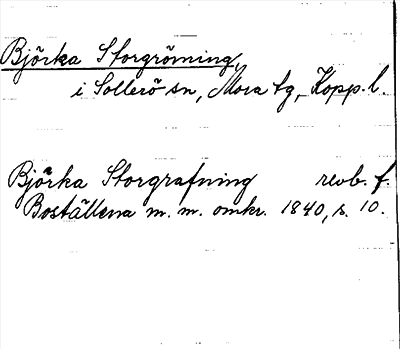 Björka Storgröning,
i Sollerö sn, Mora tg, Kopp. l.
Björka Storgrafning revb. f.
Boställena m. m. omkr. 1840, s. 10.